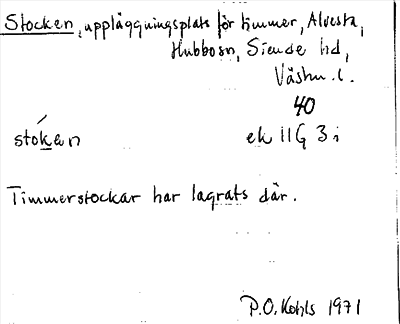 Stocken, uppläggningsplats för timmer, Alvesta,
Hubbo sn, Siende hd,
Västm. l.
40
stòkan ek 11G 3 i
Timmerstockar har lagrats där.
P.O. Kohls 1971